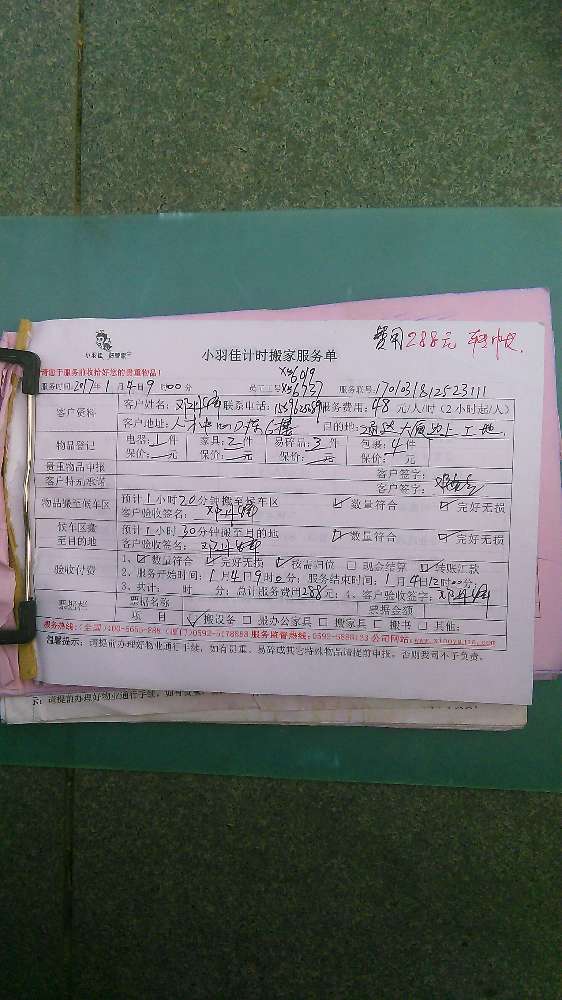 费用288元
小羽佳计时搬家服务单
请您于服务前收拾好您的贵重物品!
XY6019
服务时间:2017年1月4日9时00分
员工工号:XY6737
服务联号:170103181252311
客户资料
客户姓名:
联系电话:
服务费用:48元/人/时(2小时起/人)
客户地址:人才中心D栋6楼
目的地:
大厦边上工地
物品登记
电器:1件
家具:2件
易碎品:3件
包裹:4件
保价: 元
保价: 元
保价: 元
保价: 元
贵重物品申报
客户签字:
客户特允承诺
客户签字:
物品搬至候车区
预计1小时20分钟搬至候车区
数量符合
完好无损
客户验收签名:
候车区搬
至目的地
预计1小时30分钟搬至目的地
数量符合
完好无损
客户验收签名:
验收付费
1、数量符合 完好无损 按需归位 现金结算 转账汇款
2、服务开始时间:1月4日9时0分;服务结束时间:1月4日12时00分;
3、共计: 时 分;总计服务费用288元;4、客户验收签字:
票据栏
票据名称
票据金额
项 目
搬设备 搬办公家具 搬家具 搬书 其他:
服务监督热线:0592-5888123
公司网站:
温馨提示:请提前办理好物业通行手续,如有贵重、易碎或其它特殊物品请提前申报,否则我司不予负责。